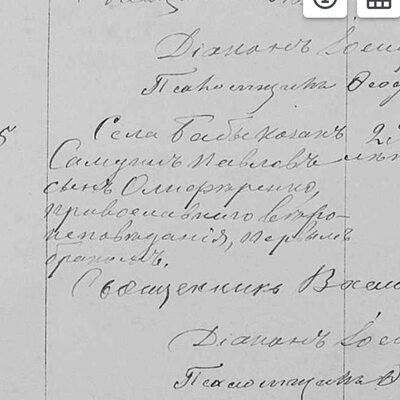 Діаконъ
Псаломщикъ Ѳеод
Села Бабы казакъ
Самуилъ Павловъ
сынъ Олиференко,
православнаго вѣро-
исповѣданія, первымъ
бракомъ.
Священникъ Васи
Діаконъ
Псаломщикъ Ѳ